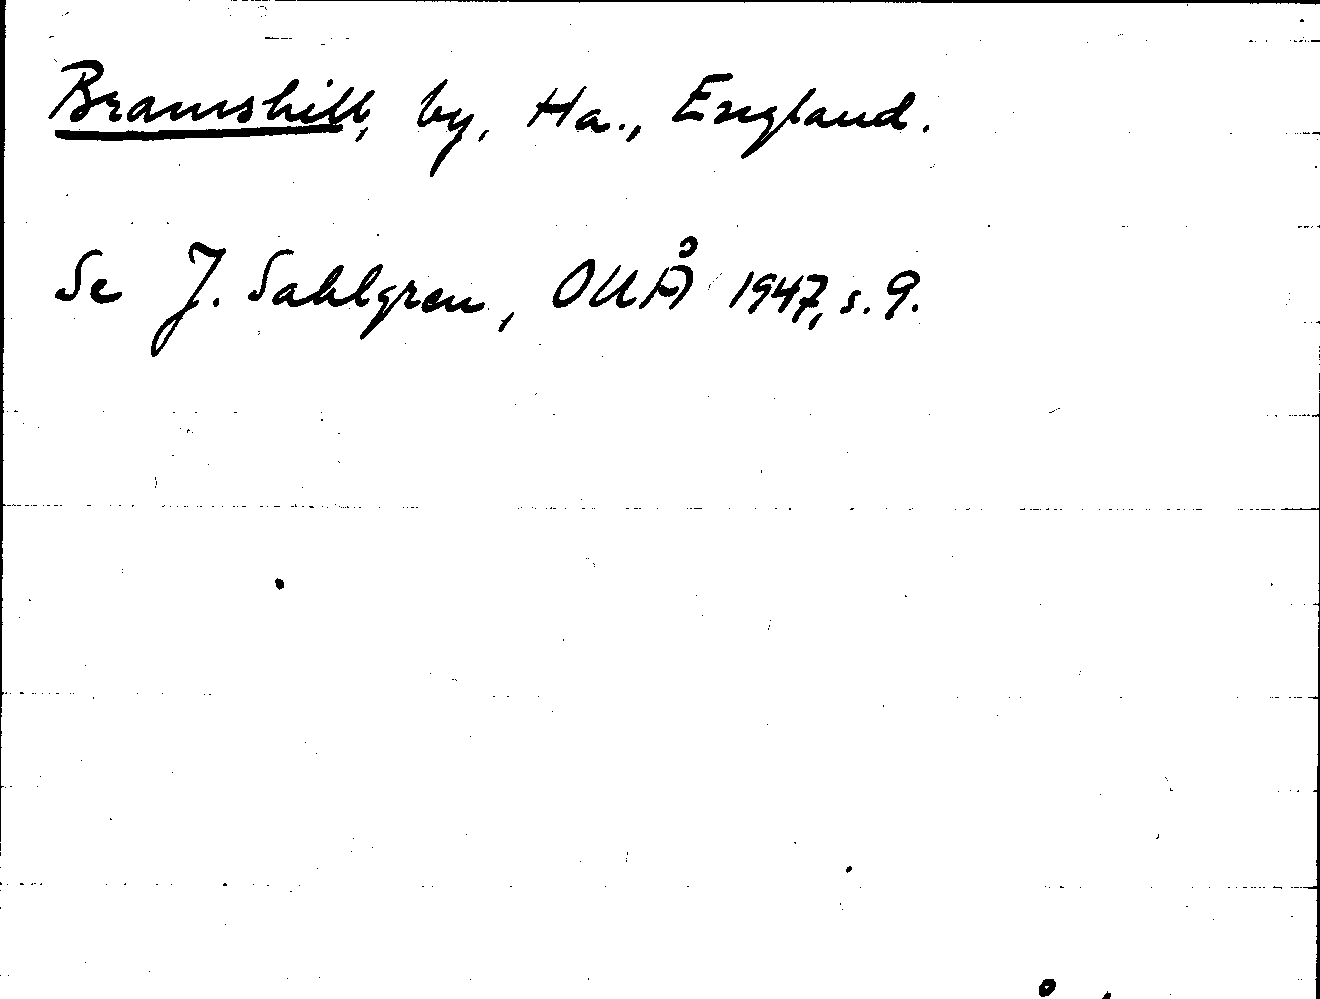 Bramshill, by, Ha., England.
Se J. Sahlgren, OUÅ 1947, s. 9.